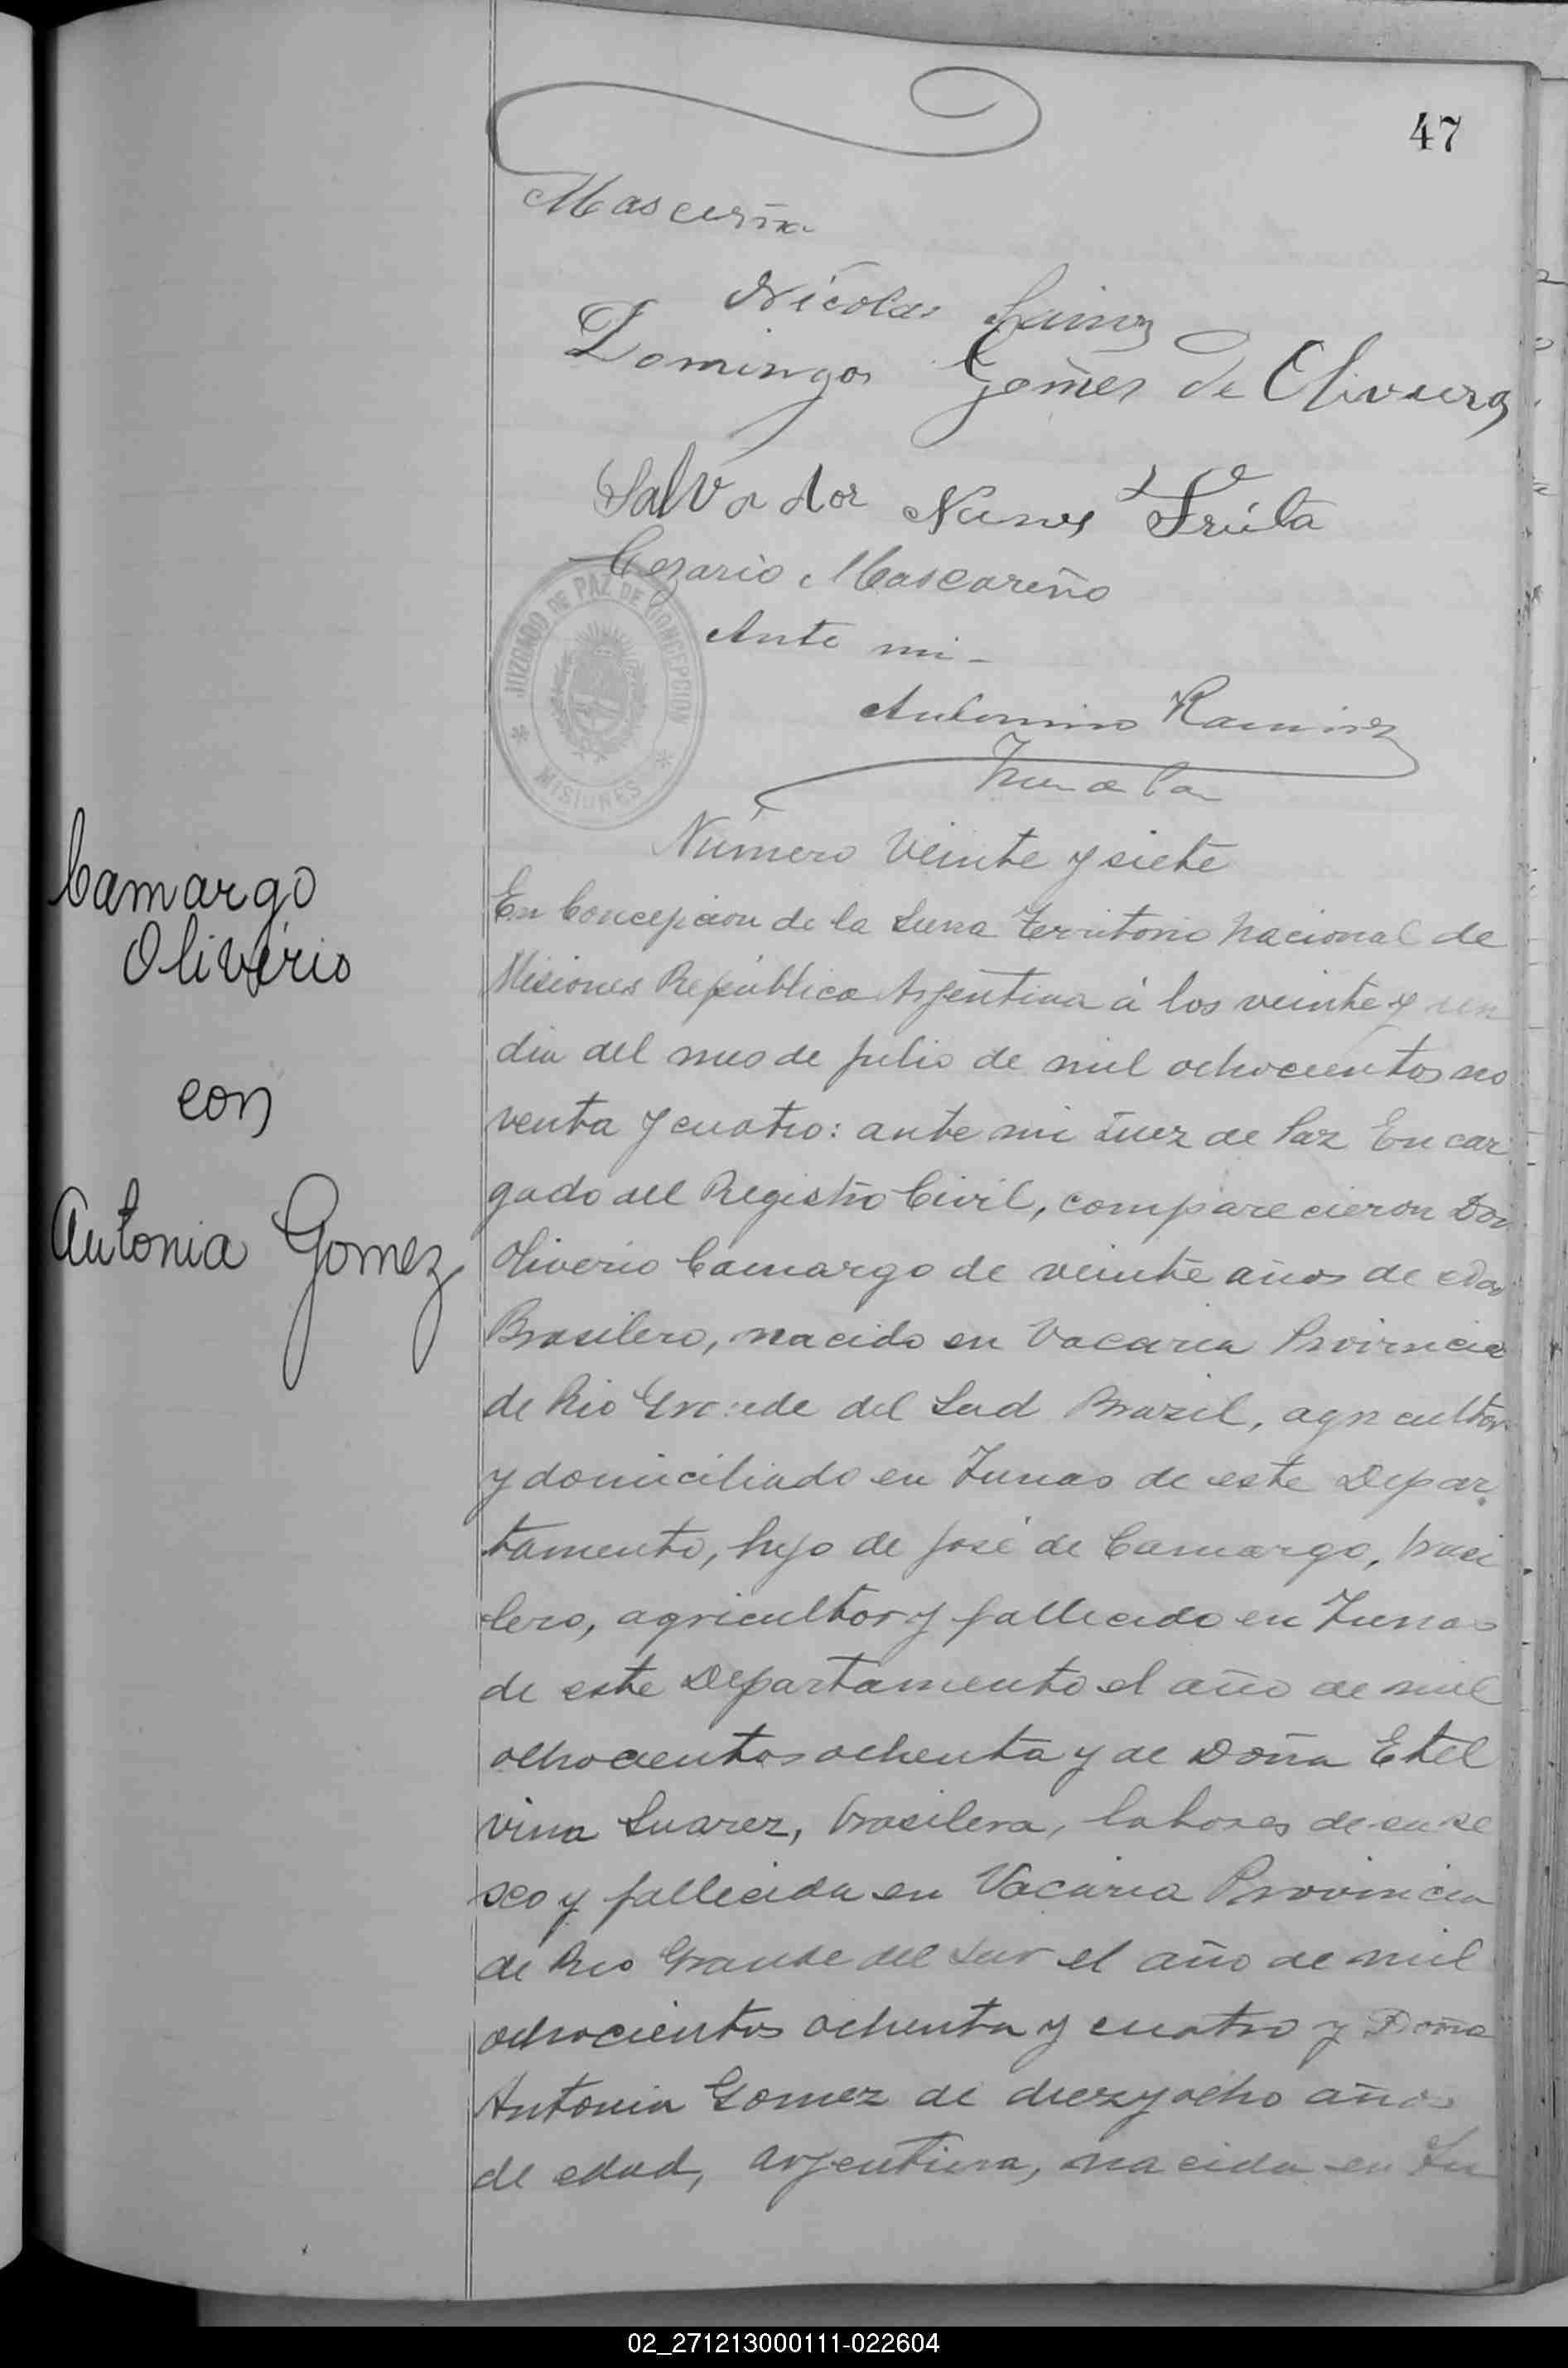 47
Mascareña
Nicolas Sainz
Domingos Gomes de Oliveira
Salvador Nunes
Cezario Mascareño
Ante mi
Antonino Ramirez
Juez de Paz
JUZGADO DE PAZ DE CONCEPCION
* MISIONES *
Número Veinte y siete
Camargo
Oliverio
con
Antonia Gomez
En Concepcion de la Sierra Territorio Nacional de
Misiones República Argentina á los veinte y un
dia del mes de julio de mil ochocientos no
venta y cuatro: ante mi Juez de Paz Encar
gado del Registro Civil, comparecieron Don
Oliverio Camargo de veinte años de edad
Brasilero, nacido en Vacaria Provincia
de Rio Grande del Sud Brazil, agricultor
y domiciliado en Tunas de este Depar
tamento, hijo de José de Camargo, brasi
lero, agricultor y fallecido en Tunas
de este Departamento el año de mil
ochocientos ochenta y de Doña Etel
vina Suarez, brasilera, labores de su se
xo y fallecida en Vacaria Provincia
de Rio Grande del Sur el año de mil
ochocientos ochenta y cuatro y Doña
Antonia Gomez de diez y ocho años
de edad, argentina, nacida en Tu
02_271213000111-022604